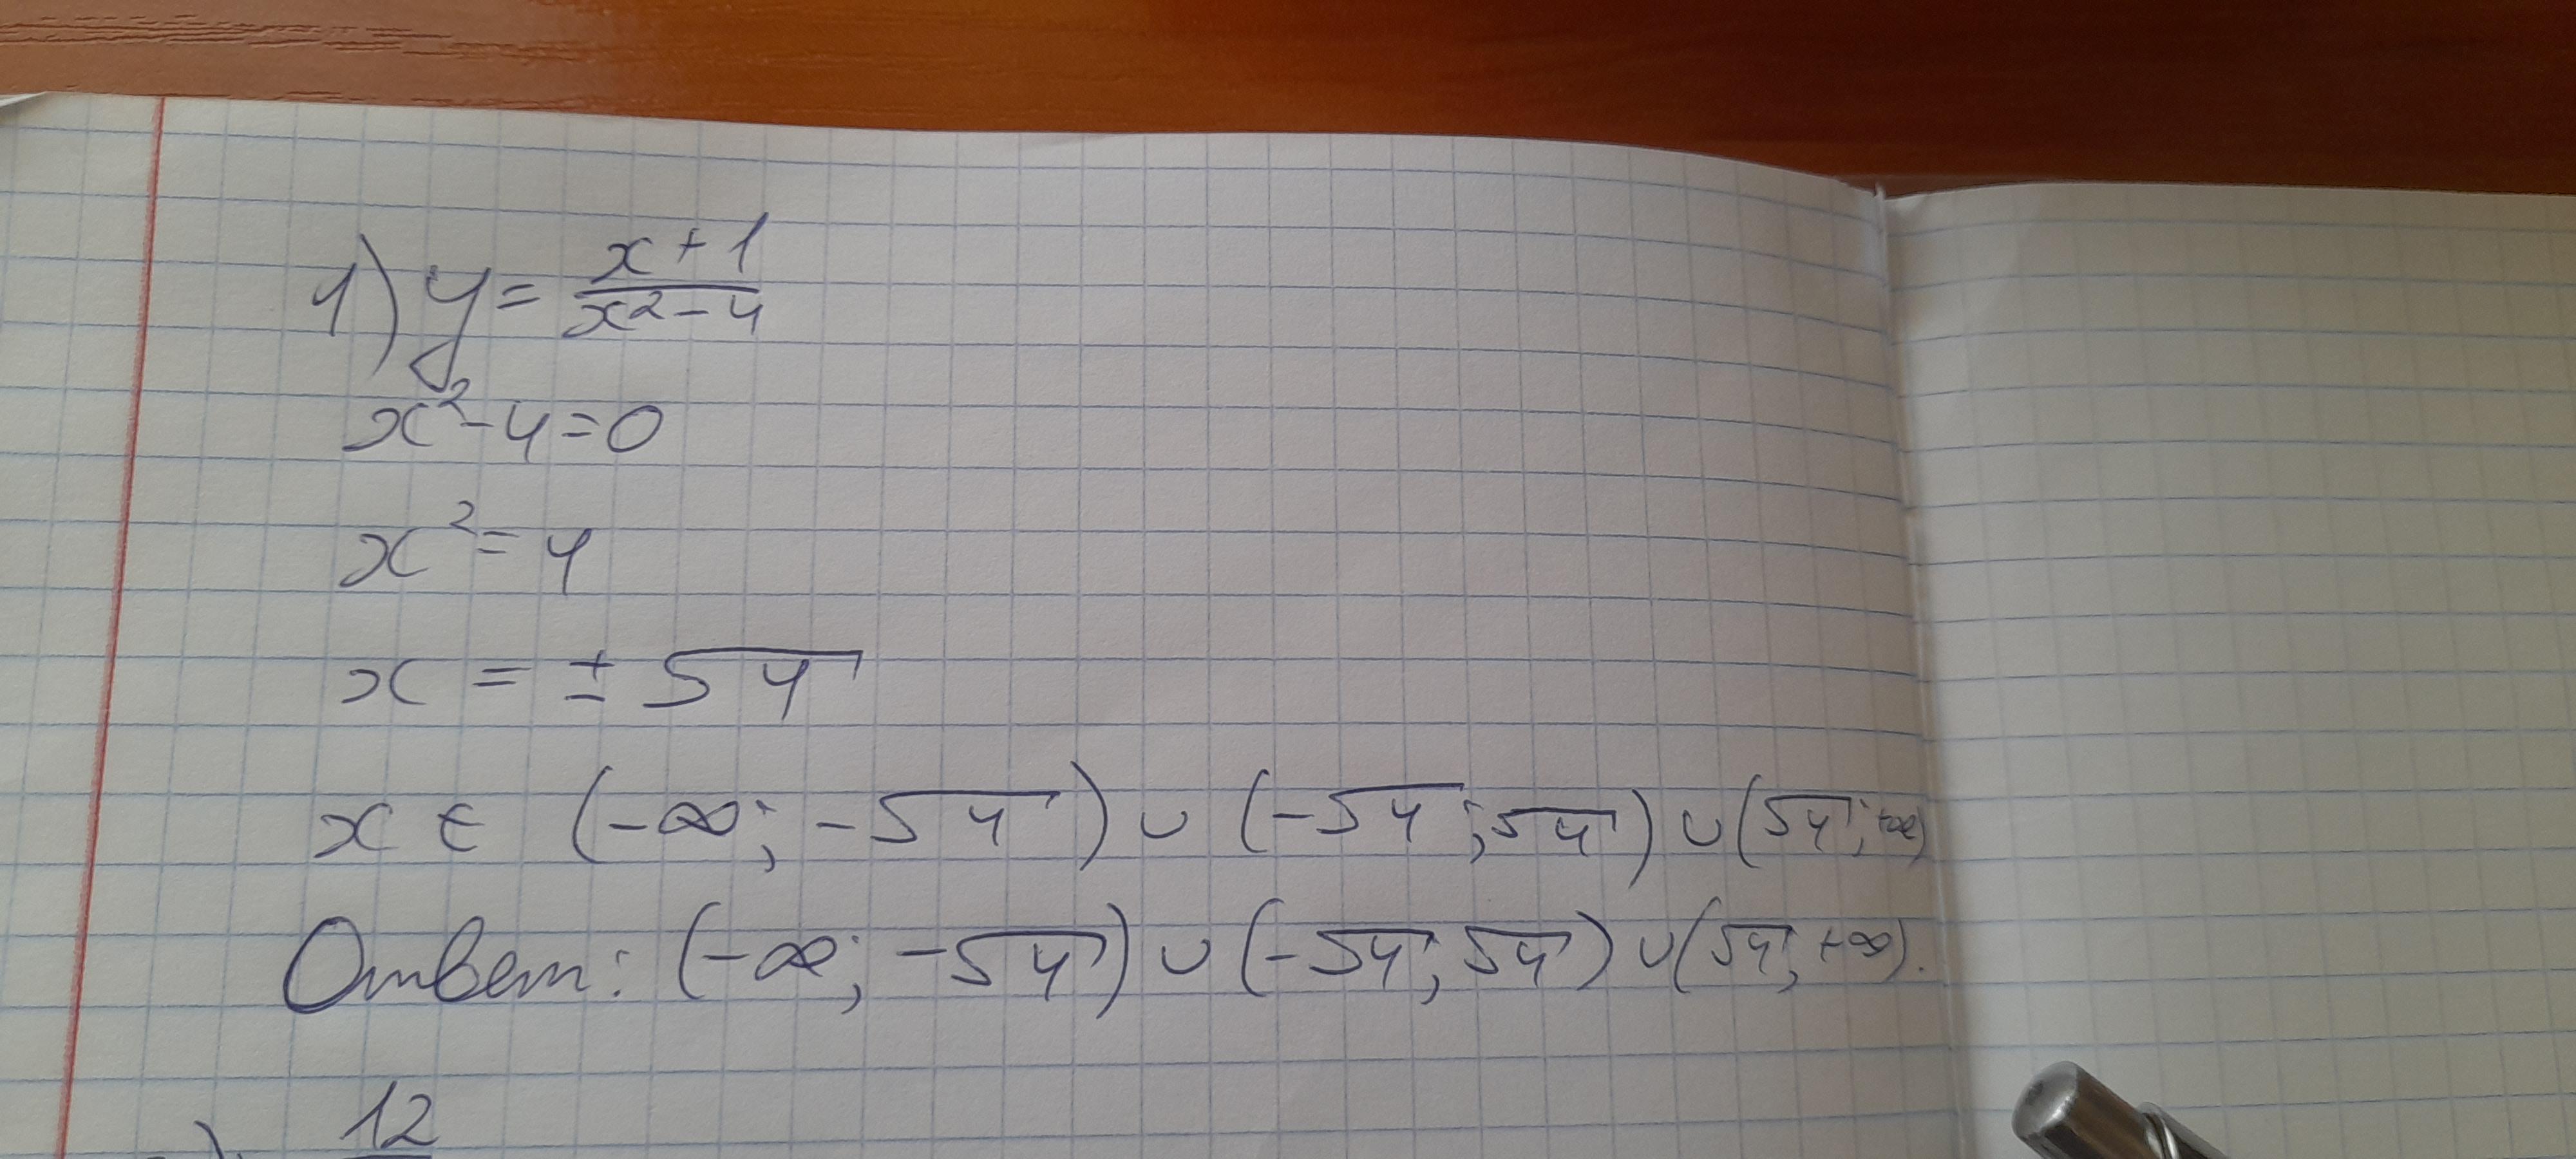 1) y = (x + 1)/(x² - 4)
x² - 4 = 0
x² = 4
x = ± √4
x ∈ (-∞; -√4) ∪ (-√4; √4) ∪ (√4; +∞)
Ответ: (-∞; -√4) ∪ (-√4; √4) ∪ (√4; +∞).
12